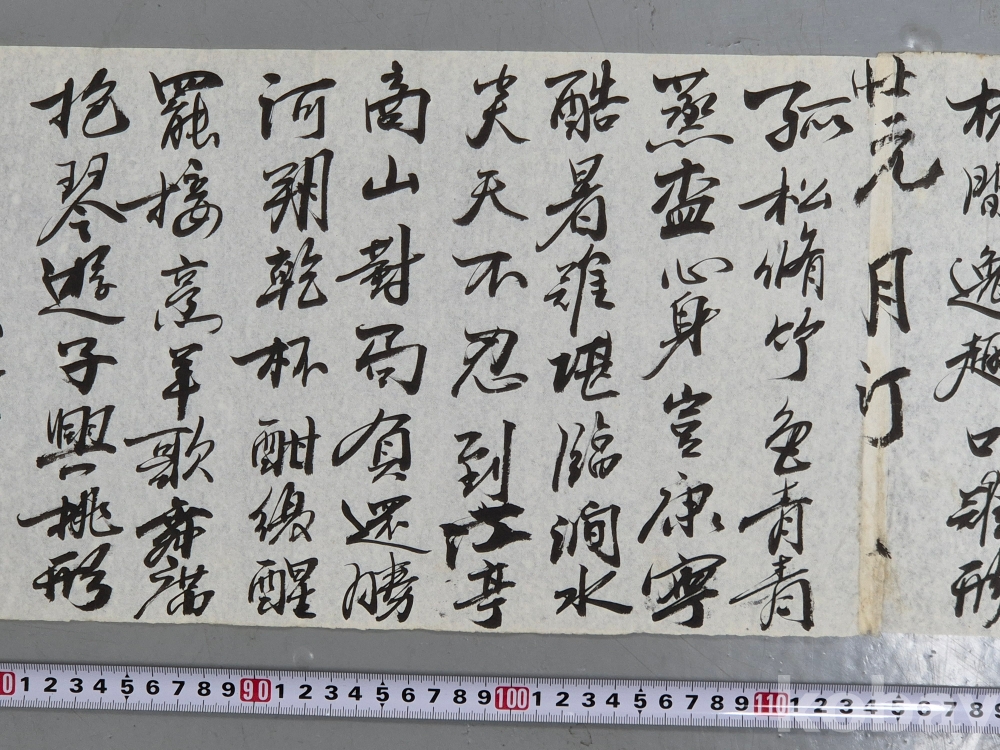 間逸趣口難形
元 月汀
孤松脩竹色青青
蒸盃心身豈康寧
酷暑難堪臨澗水
炎天不忍到江亭
商山對局負還勝
河朔乾杯酣復醒
罷接烹羊歌舞
抱琴遊子興挑形
1 2 3 4 5 6 7 8 9 90 1 2 3 4 5 6 7 8 9 100 1 2 3 4 5 6 7 8 9 110 1 2 3 4 5 6 7 8 9